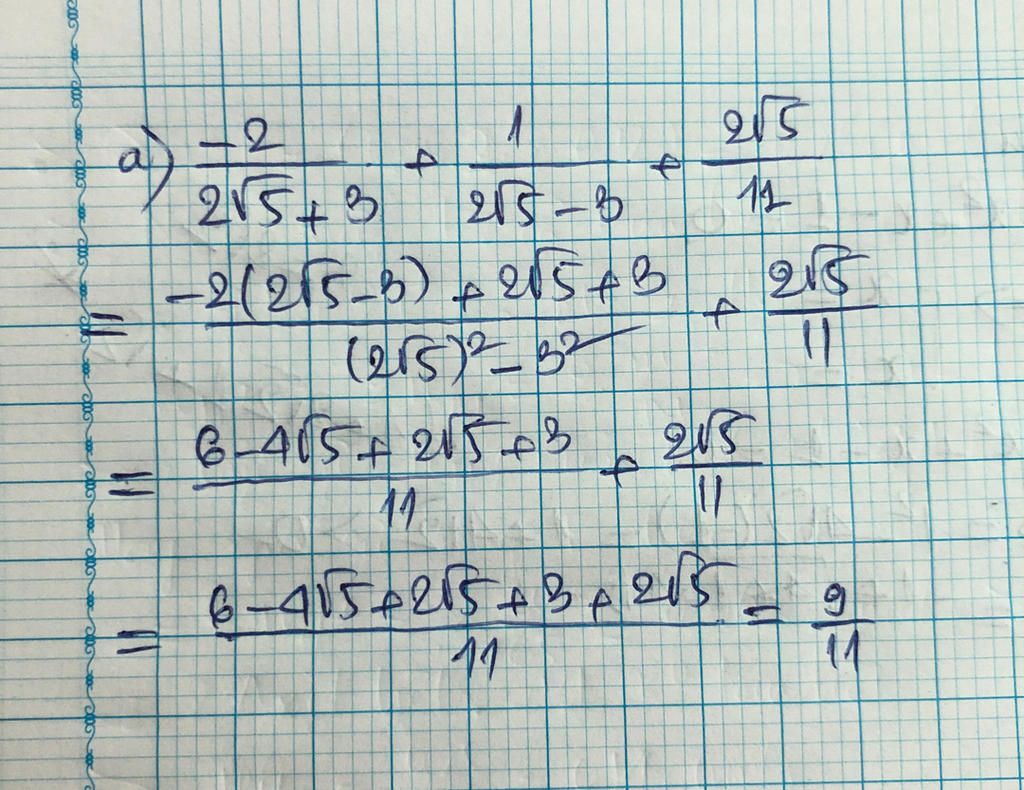 a) \frac{-2}{2\sqrt{5}+3} + \frac{1}{2\sqrt{5}-3} + \frac{2\sqrt{5}}{11}
= \frac{-2(2\sqrt{5}-3)+2\sqrt{5}+3}{(2\sqrt{5})^2-3^2} + \frac{2\sqrt{5}}{11}
= \frac{6-4\sqrt{5}+2\sqrt{5}+3}{11} + \frac{2\sqrt{5}}{11}
= \frac{6-4\sqrt{5}+2\sqrt{5}+3+2\sqrt{5}}{11} = \frac{9}{11}